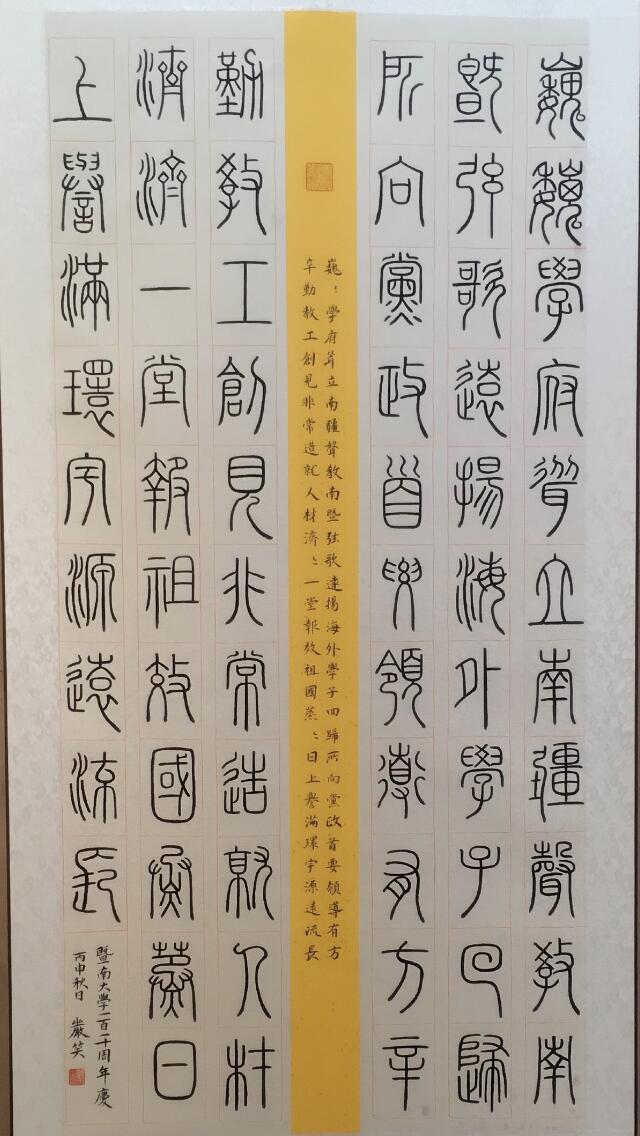 巍巍學府聳立南疆聲教南
暨弦歌遠揚海外學子回歸
所向黨政首要領導有方辛
巍〻學府聳立南疆聲教南暨弦歌遠揚海外學子回歸所向黨政首要領導有方
辛勤教工創見非常造就人材濟〻一堂報效祖國蒸〻日上譽滿環宇源遠流長
勤教工創見非常造就人材
濟濟一堂報祖效國蒸蒸日
上譽滿環宇源遠流長
暨南大學一百一十周年慶
丙申秋日 嚴笑